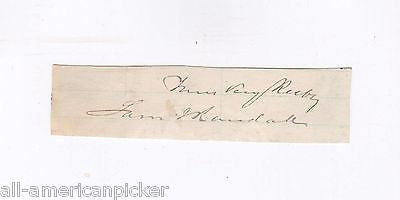 Yours Very Respy
Sam J Randall
all-americanpicker